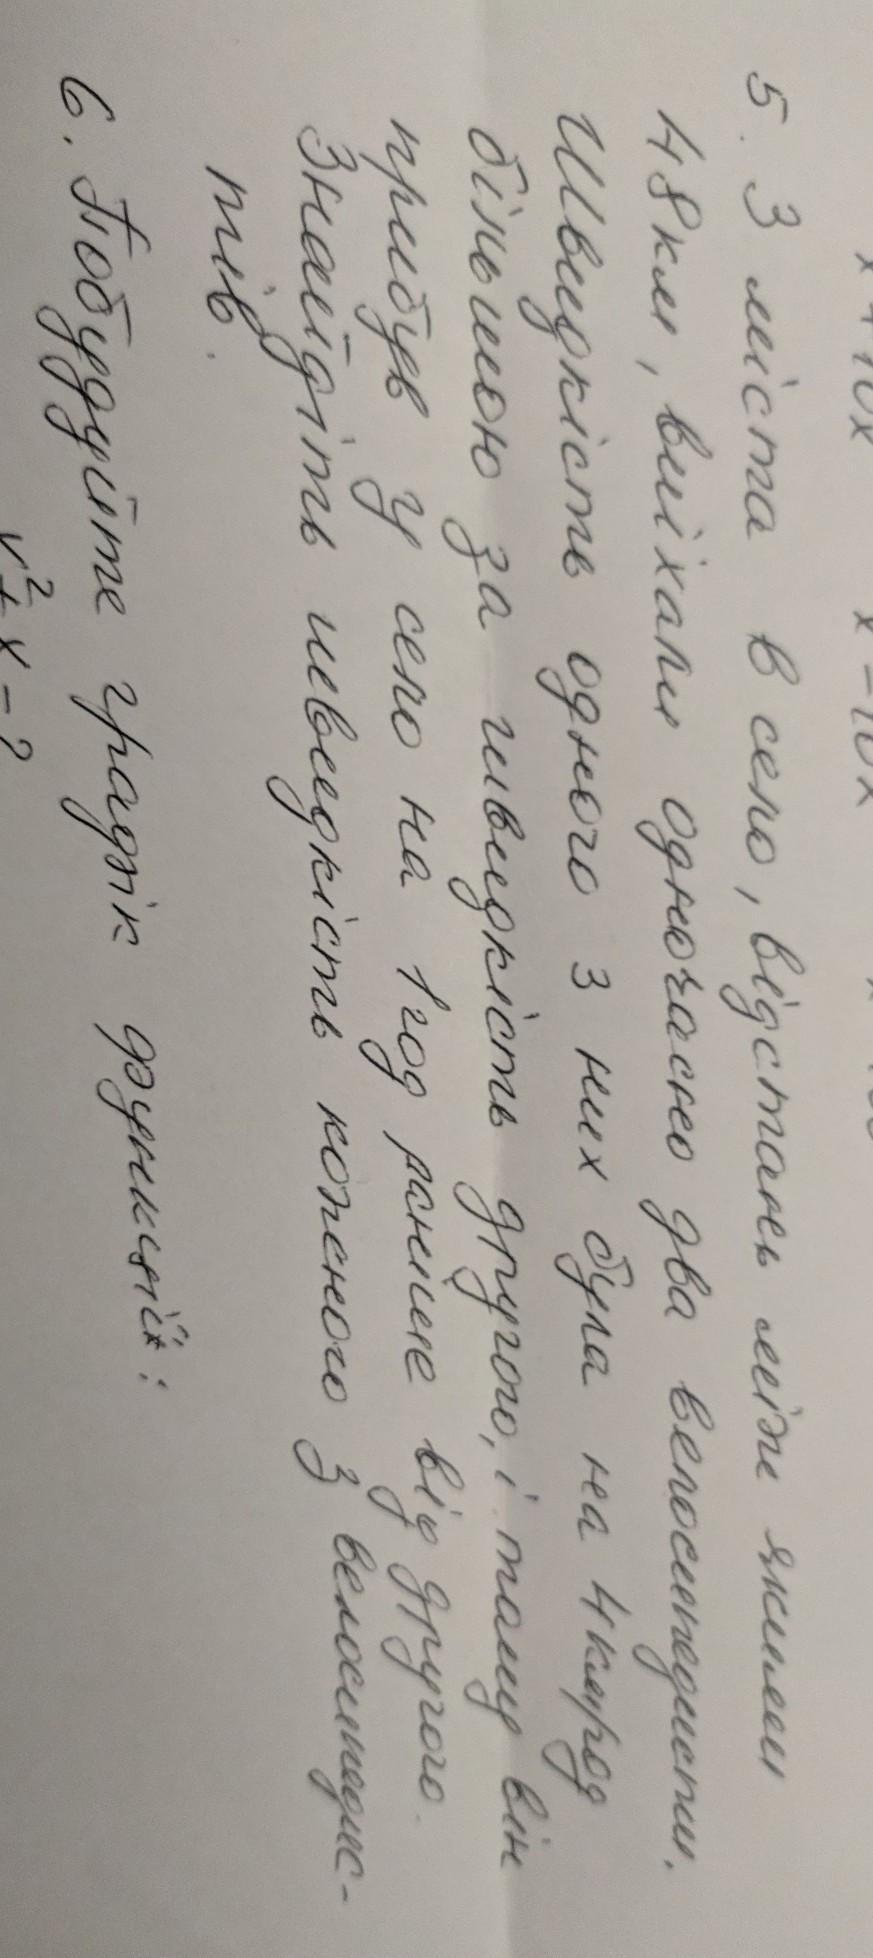 x + 10x x - 10x
5. З міста в село, відстань між якими
48км, виїхали одночасно два велосипедисти.
Швидкість одного з них була на 4км/год
більшою за швидкість другого, і тому він
прибув у село на 1год раніше від другого.
Знайдіть швидкість кожного з велосипедис-
тів.
6. Побудуйте графік функції:
x² + x - 2